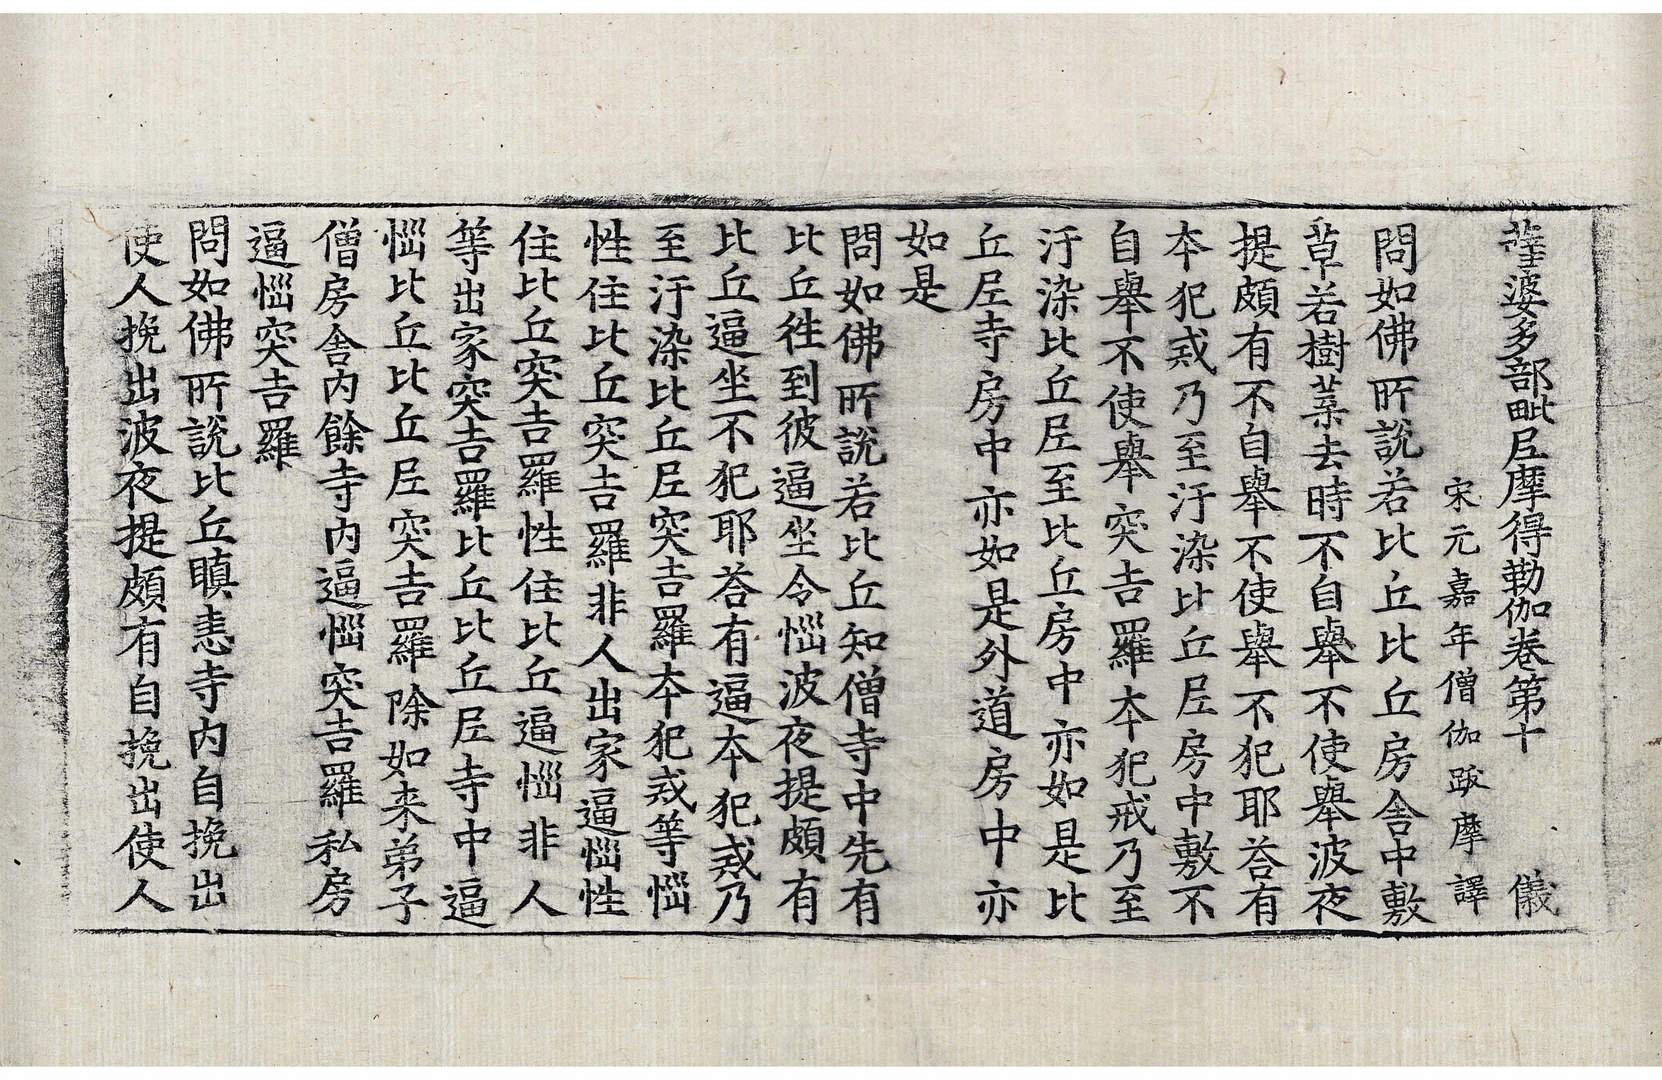 薩婆多部毗尼摩得勒伽卷第十 儀
宋元嘉年僧伽跋摩譯
問如佛所說若比丘比丘房舍中敷
草若樹葉去時不自舉不使舉波夜
提頗有不自舉不使舉不犯耶荅有
本犯戒乃至汙染比丘尼房中敷不
自舉不使舉突吉羅本犯戒乃至
汙染比丘尼至比丘房中亦如是比
丘尼寺房中亦如是外道房中亦
如是
問如佛所說若比丘知僧寺中先有
比丘徃到彼逼坐令惱波夜提頗有
比丘逼坐不犯耶荅有逼本犯戒乃
至汙染比丘尼突吉羅本犯戒等惱
性住比丘突吉羅非人出家逼惱性
住比丘突吉羅性住比丘逼惱非人
等出家突吉羅比丘比丘尼寺中逼
惱比丘比丘尼突吉羅除如来弟子
僧房舍內餘寺內逼惱突吉羅私房
逼惱突吉羅
問如佛所說比丘瞋恚寺內自挽出
使人挽出波夜提頗有自挽出使人